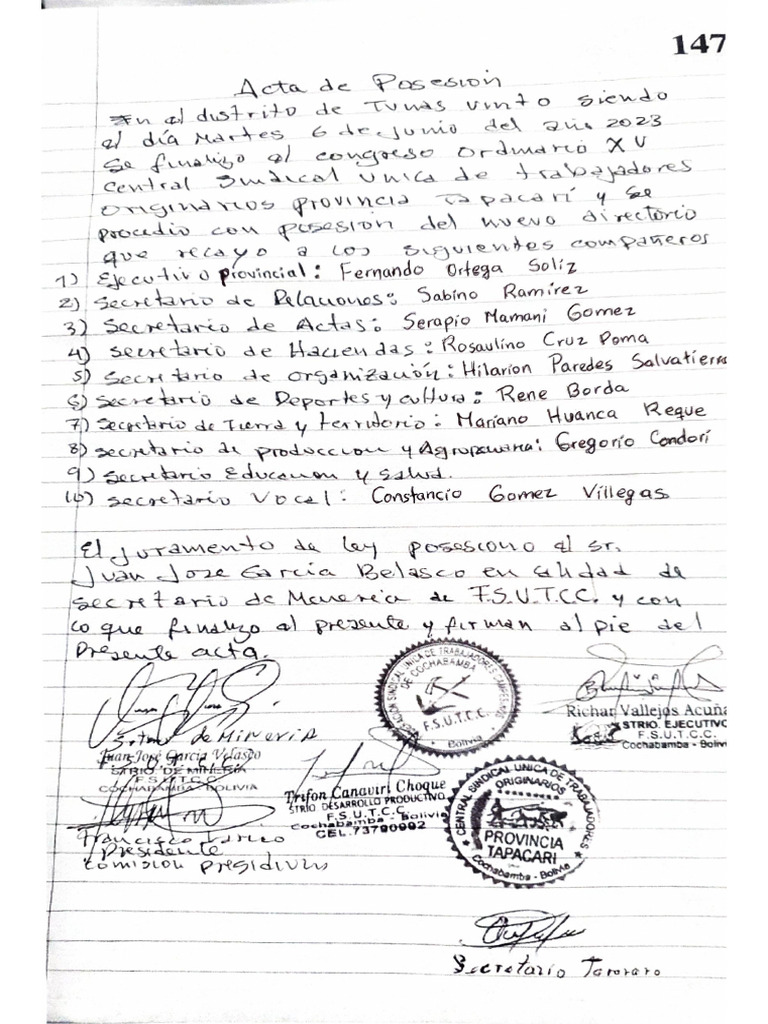 147
Acta de Posesion
En el distrito de Tunas vinto siendo
el día Martes 6 de Junio del año 2023
se finalizo el congreso ordinario XV
central Sindical unica de trabajadores
originarios provincia Tapacarí y se
procedio con posesion del nuevo directorio
que recayo a los siguientes compañeros
1) Ejecutivo provincial: Fernando Ortega Soliz
2) Secretario de Relaciones: Sabino Ramirez
3) Secretario de Actas: Serapio Mamani Gomez
4) secretario de Haciendas: Rosaulino Cruz Poma
5) Secretario de organización: Hilarion Paredes Salvatierra
6) Secretario de Deportes y cultura: Rene Borda
7) Secretario de Tierra y territorio: Mariano Huanca Reque
8) secretario de produccion y Agropecuaria: Gregorio Condorí
9) Secretario Educacion y salud.
10) secretario Vocal: Constancio Gomez Villegas
El juramento de ley posesiono el sr.
Juan Jose Garcia Belasco en calidad de
secretario de Mineria de F.S.U.T.C.C. y con
lo que finalizo el presente y firman al pie del
Presente acta.
FEDERACION SINDICAL UNICA DE TRABAJADORES CAMPESINOS
DE COCHABAMBA
F.S.U.T.C.C.
Bolivia
Richar Vallejos Acuña
STRIO. EJECUTIVO
F.S.U.T.C.C.
Cochabamba - Bolivia
de MINERIA
Juan José Garcia Velasco
STRIO. DE MINERIA
F.S.U.T.C.C.
COCHABAMBA BOLIVIA
Trifon Canaviri Choque
STRIO DESARROLLO PRODUCTIVO
F.S.U.T.C.C.
Cochabamba - Bolivia
CEL. 73790992
CENTRAL SINDICAL UNICA DE TRABAJADORES
ORIGINARIOS
PROVINCIA
TAPACARI
Cochabamba - Bolivia
Francisco
Presidente
comision presidium
Secretario